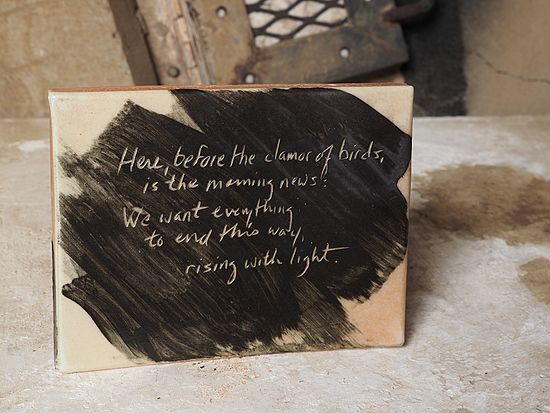 Here, before the clamor of birds,
is the morning news:
We want everything
to end this way,
rising with light.